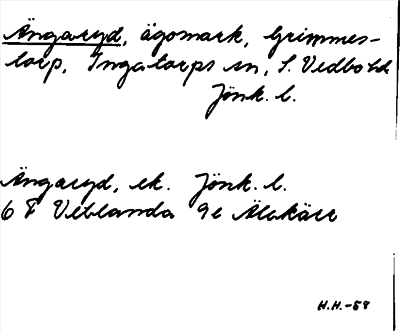 Ängaryd, ägomark, Grimmes-
torp, Ingatorps sn, S. Vedbo hd
Jönk. l.
Ängaryd, ek. Jönk. l.
6 F Vetlanda 9e Älekärr
H.H.-58